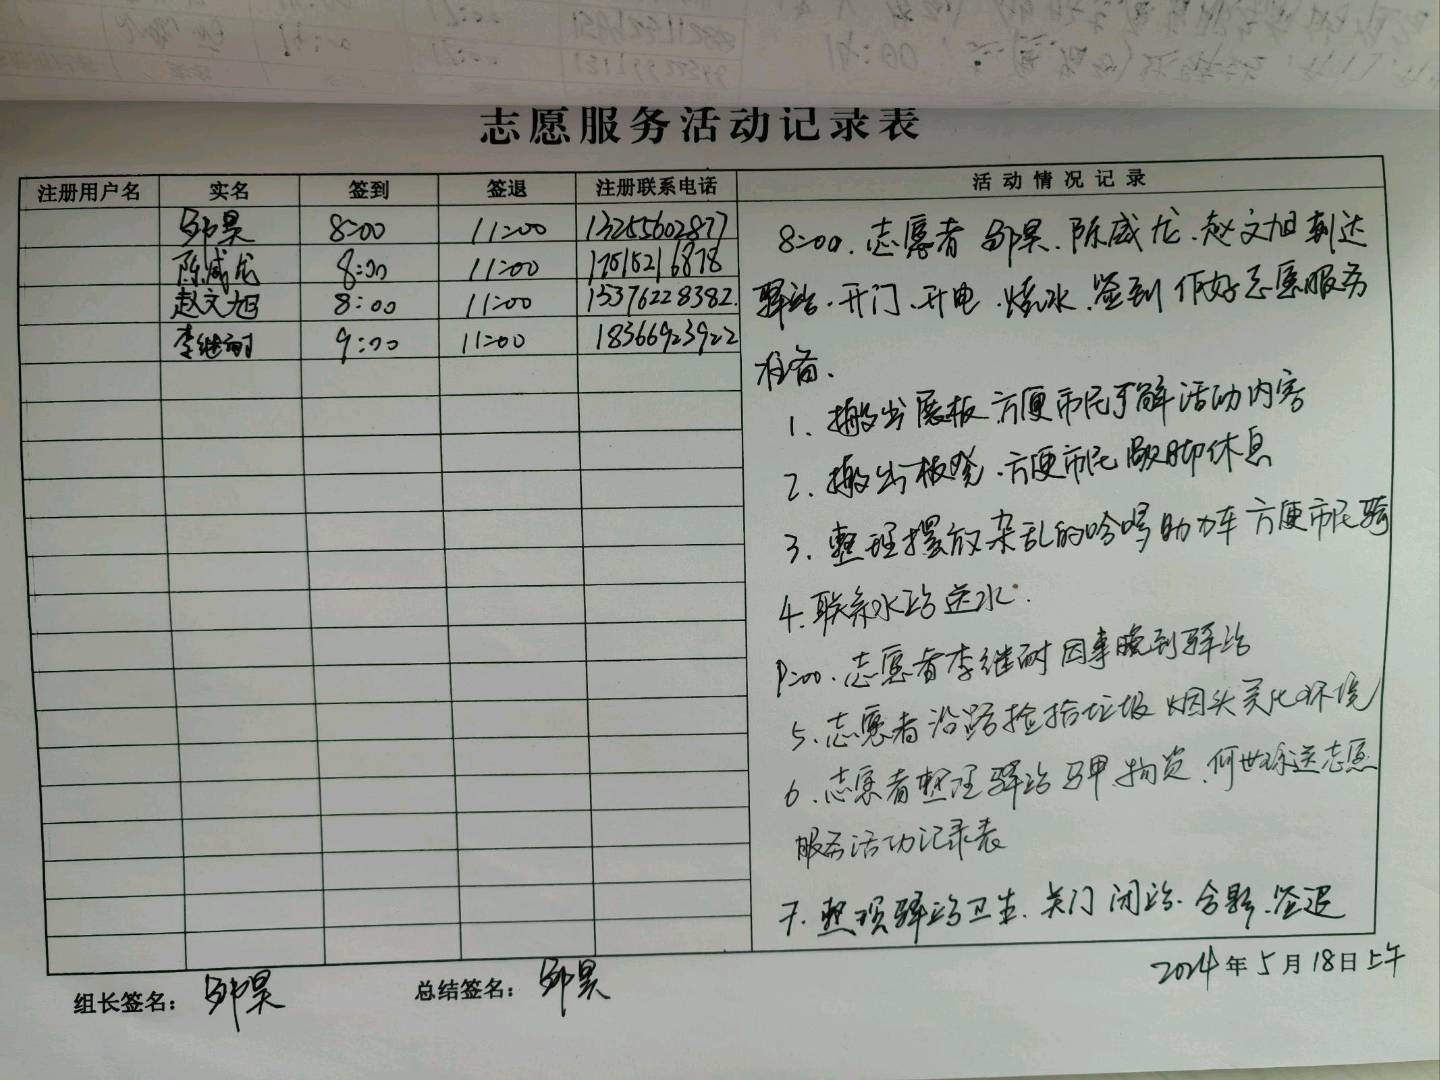 志愿服务活动记录表
注册用户名 实名 签到 签退 注册联系电话 活动情况记录
邹昊 8:00 11:00 13255602877
陈威龙 8:00 11:00 17515216878
赵文旭 8:00 11:00 15376228382
李继耐 9:00 11:00 18366923922
8:00.志愿者 邹昊.陈威龙.赵文旭到达
驿站.开门.开电.烧水.签到 作好志愿服务
准备.
1、搬出展板 方便市民了解活动内容
2、搬出板凳.方便市民歇脚休息
3.整理摆放杂乱的哈啰助力车 方便市民骑
4.联系水站送水.
9:00.志愿者李继耐因事晚到驿站
5、志愿者沿路捡拾垃圾 烟头美化环境
6.志愿者整理驿站马甲.物资.何世珍送志愿
服务活动记录表
7.整理驿站卫生.关门 闭站.合影.签退
2024年5月18日上午
组长签名: 邹昊 总结签名: 邹昊